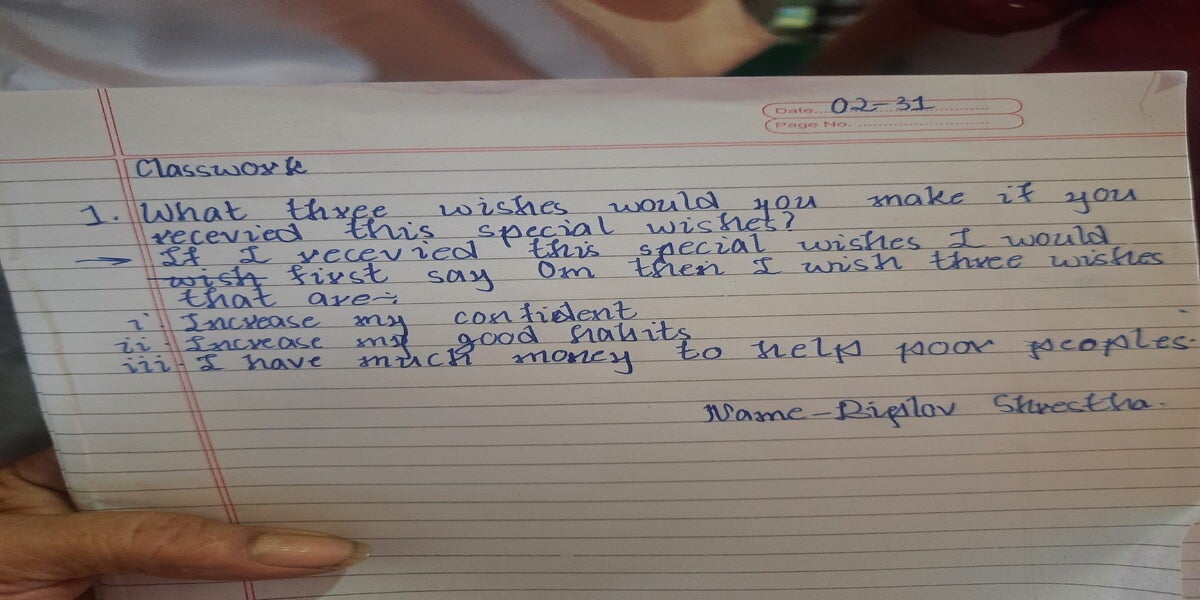 Date... 02-31
Page No.
Classwork
1. What three wishes would you make if you
recevied this special wishes?
→ If I recevied this special wishes I would
wish first say Om then I wish three wishes
that are-:
i. Increase my confident
ii. Increase my good habits
iii. I have much money to help poor peoples.
Name - Shrestha.